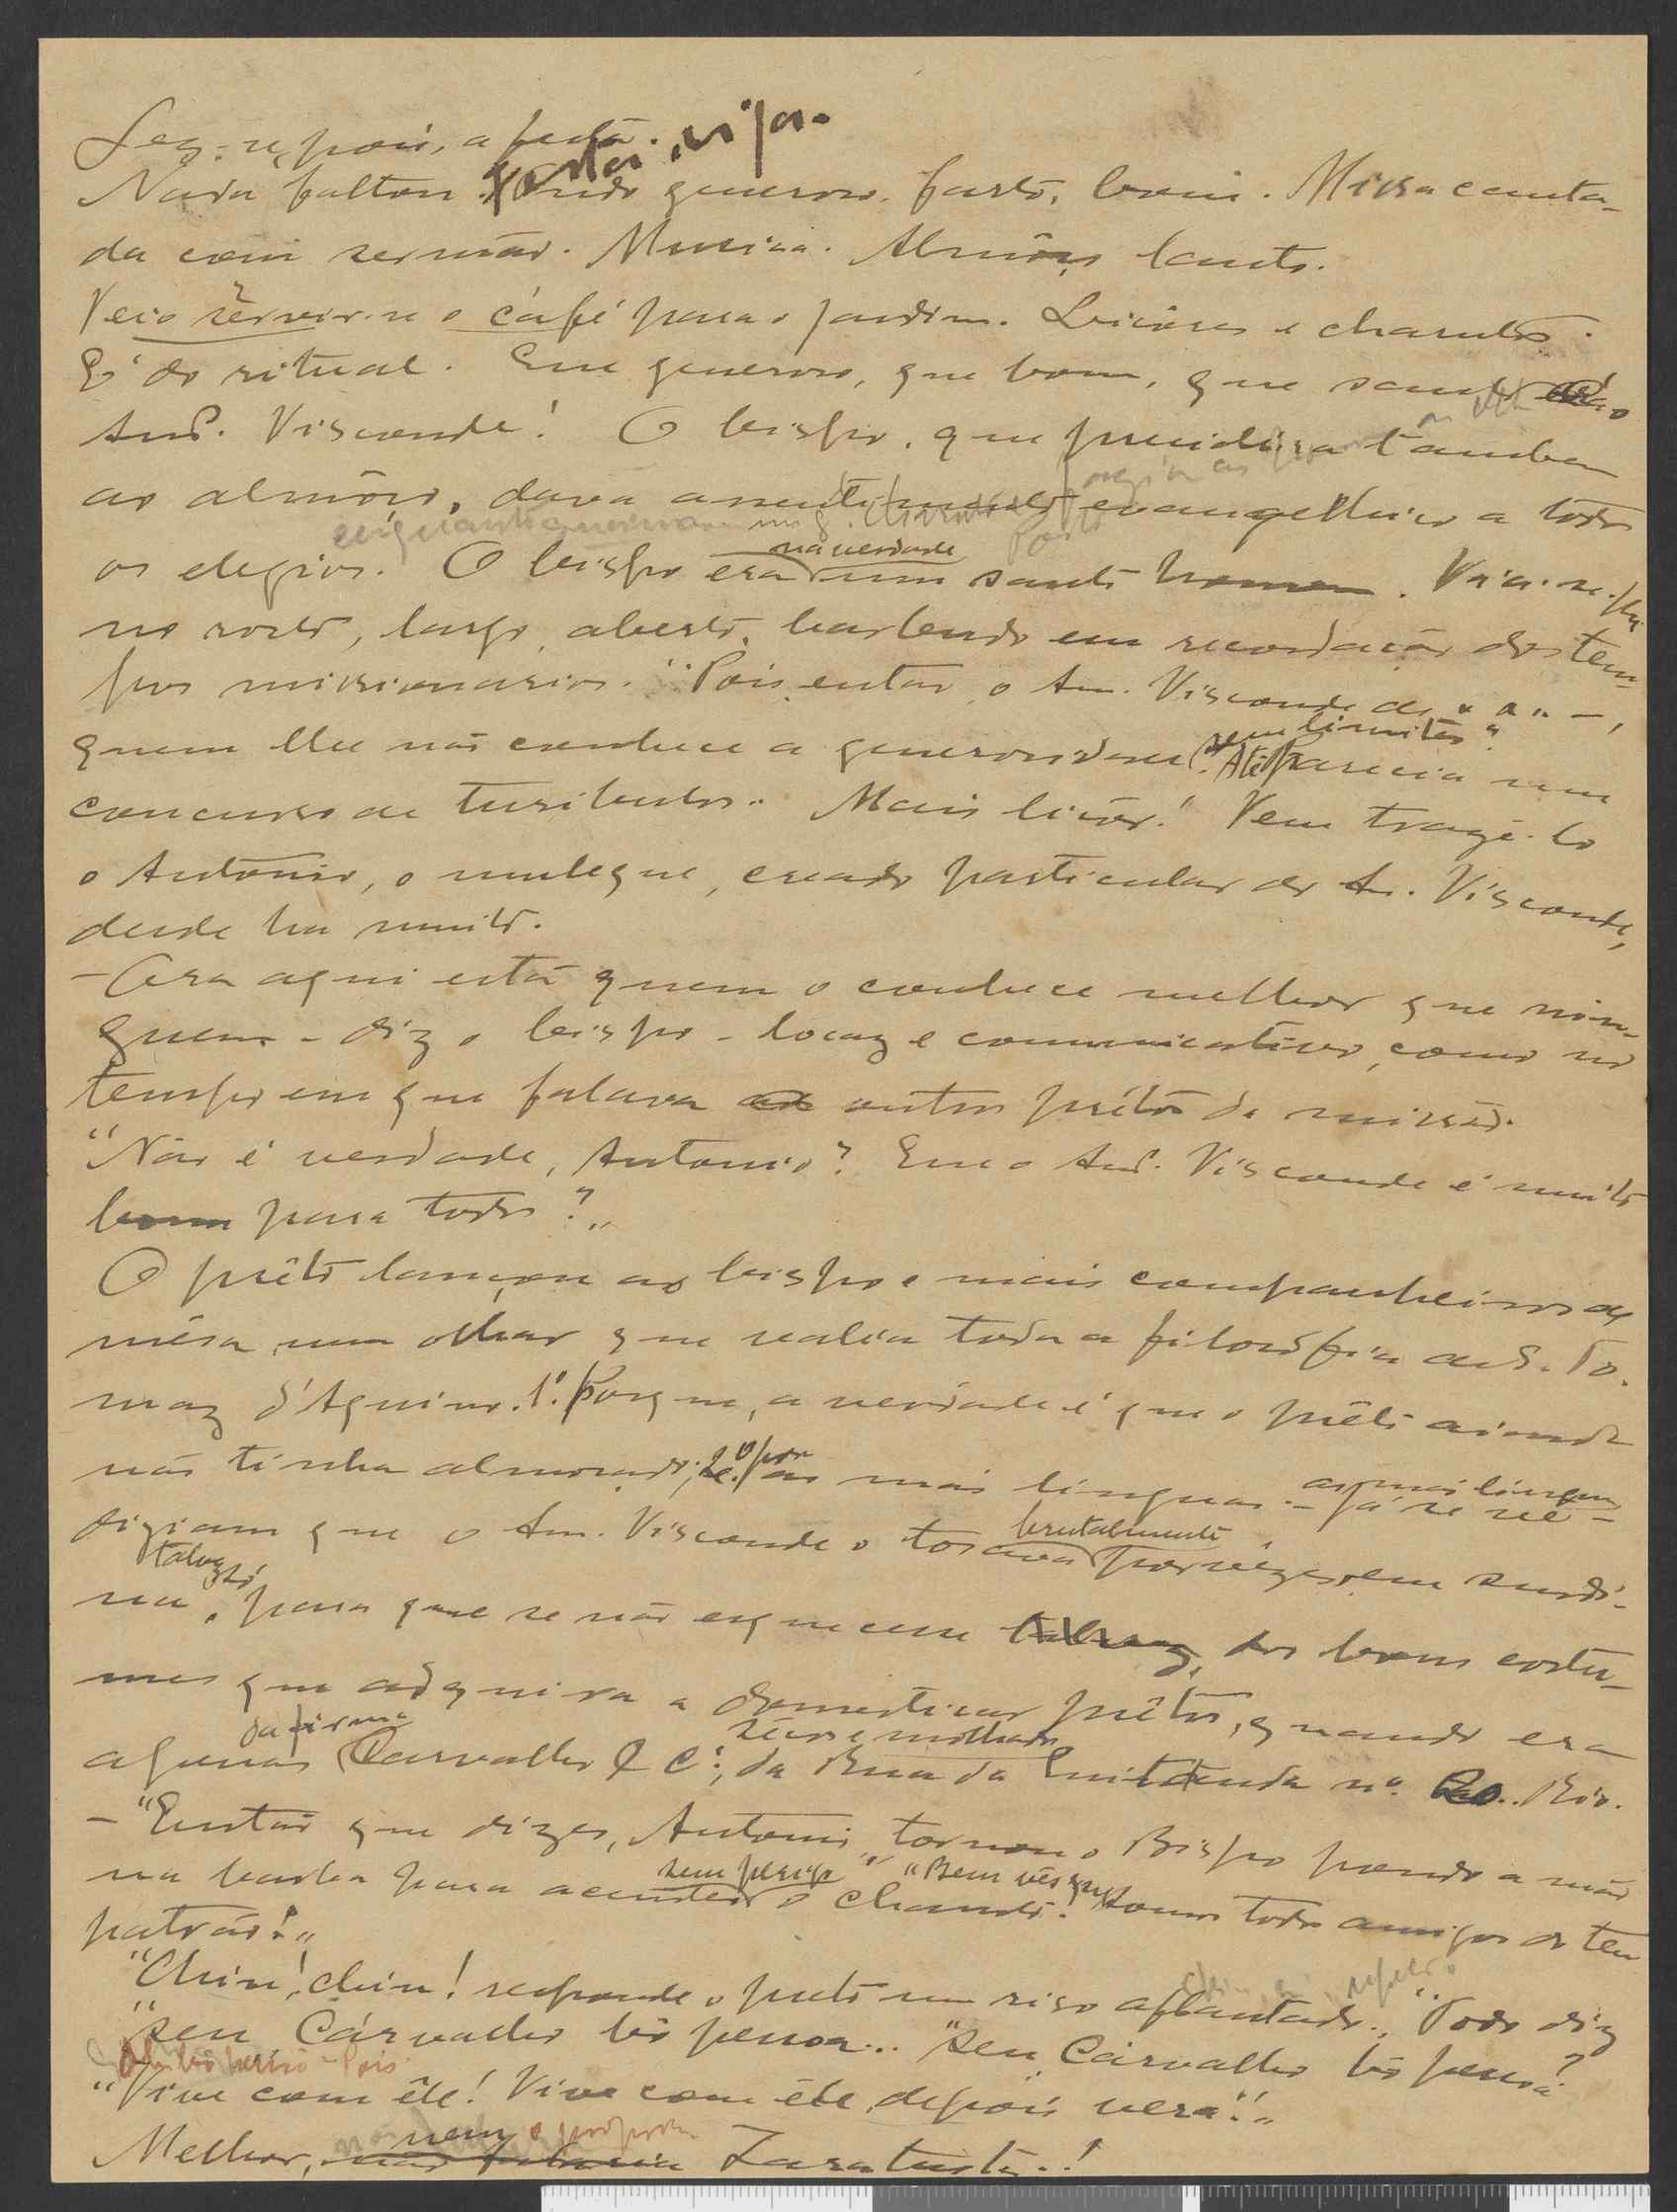 Seg-se, pois, a festa.
Nada faltou. generoso, farto, bom. Missa canta-
da com sermão. Musica. Almôço lauto.
Veio servir-se o café para o jardim. Licôres e charutos.
E' do ritual. Que generoso, que bom, que santo o
Snr. Visconde! O bispo, que presidira tambem
ao almôço, dava assentimento evangelhico a todos
os elogios. O bispo era na verdade um santo homem. Via-se-lhe
no rosto, largo, aberto, barbudo em recordação dos tem-
pos missionarios. "Pois então, o Snr. Visconde de " " " —,
quem lhe não conhece a generosidade sem limites? Até parecia um
concurso de turibulos. Mais licôr! Vem trazê-lo
o António, o muleque, creado particular do Sr. Visconde,
desde ha muito.
— Ora aqui está quem o conhece melhor que nin-
guem - diz o bispo - loquaz e communicativo, como no
tempo em que falava outros prêtos da missão.
"Não é verdade, Antonio? Que o Snr. Visconde é muito
bom para todos?"
O prêto lançou ao bispo e mais companheiros de
mêsa, um olhar que valia toda a filosófia de S. To-
maz d'Aquino. Porque, a verdade é que o prêto ainda
não tinha almoçado; as más linguas - as más linguas já se vê -
diziam que o Snr. Visconde o tosava brutalmente por vêzes, em surdi-
na, talvez só para que se não esquecesse dos bons costu-
mes que adquirira a domesticar prêtos, quando era
apenas da firma Carvalho & C.ª, sêcos e molhados da Rua da Quitanda nº 20. Rio.
— "Então que dizes, Antonio", tornou o Bispo pondo a mão
na barba para acender sem perigo o charuto! "Bem vês que somos todos amigos do teu
patrão!"
"Chin! chin! responde o prêto num riso aflautado. "Todo diz
"seu Cárvalho bô pessoa... "Seu Cárvalho bô pessoá?
"Vive com êle! Vive com êle, depois verá!"
Melhor, nem o proprio Zaratustra!